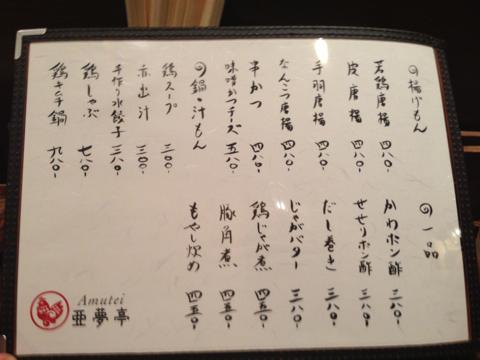 の揚げもん
若鶏唐揚 四八〇-
皮唐揚 四八〇-
手羽唐揚 四八〇-
なんこつ唐揚 四八〇-
串かつ 四八〇-
味噌かつチーズ 五八〇-
の鍋・汁もん
鶏スープ 三〇〇-
赤出汁 三〇〇-
手作り水餃子 三八〇-
鶏しゃぶ 七八〇-
鶏チゲ鍋 九八〇-
の一品
かわポン酢 三八〇-
せせりポン酢 三八〇-
だし巻き 三八〇-
じゃがバター 三八〇-
鶏じゃが煮 四五〇-
豚角煮 四五〇-
もやし炒め 四五〇-
Amutei
亜夢亭